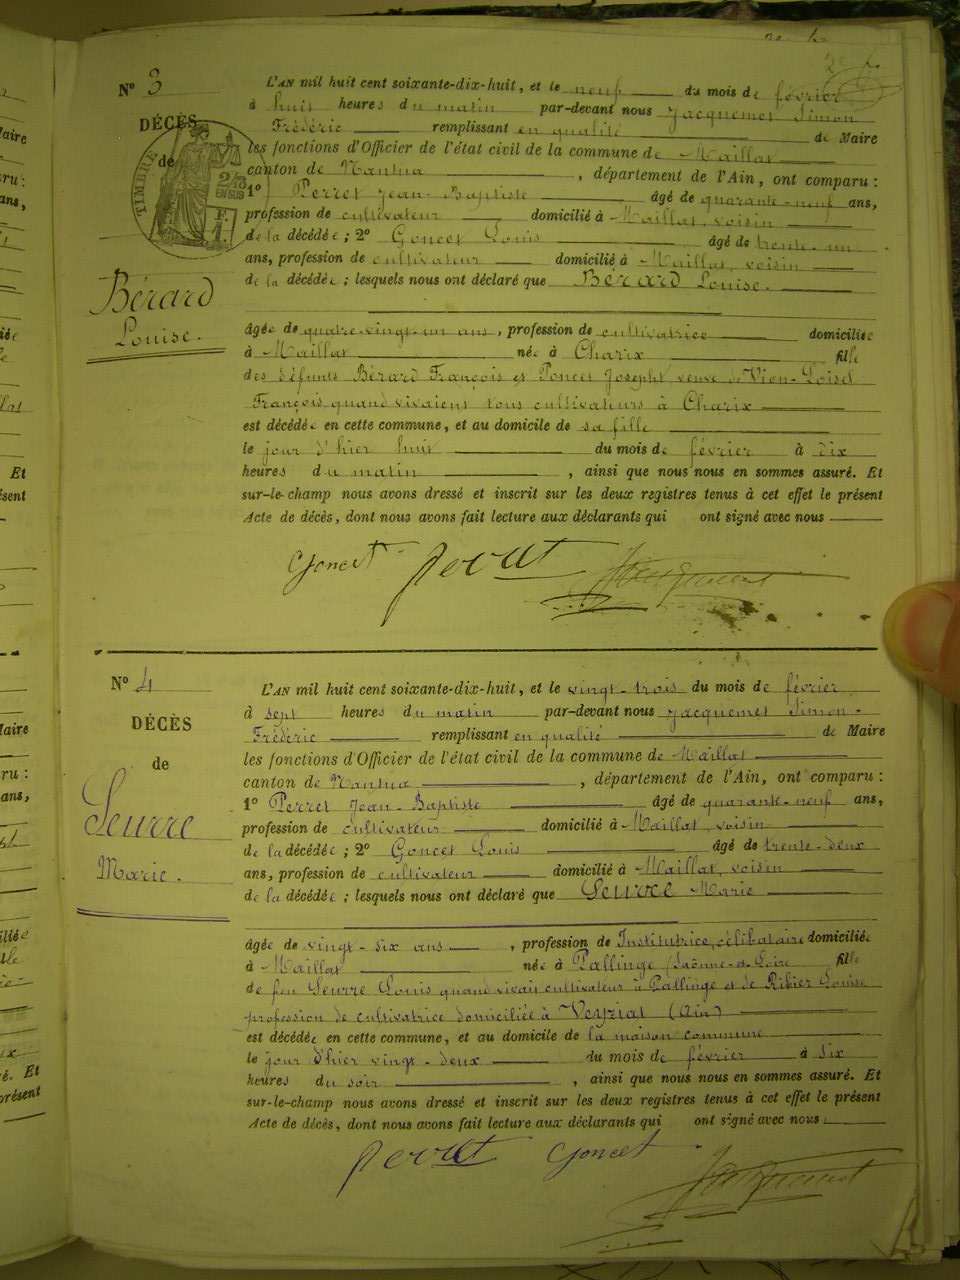 Nº 3
DÉCÈS
de
TIMBRE
Bérard
Louise.
L'AN mil huit cent soixante-dix-huit, et le neuf du mois de février
à huit heures du matin par-devant nous Jacquemet Simon
Frédéric remplissant en qualité de Maire
les fonctions d'Officier de l'état civil de la commune de Maillat
canton de Nantua, département de l'Ain, ont comparu :
1º Perret Jean-Baptiste âgé de quarante-neuf ans,
profession de cultivateur domicilié à Maillat, voisin
de la décédée ; 2º Goncet Louis âgé de trente-un
ans, profession de cultivateur domicilié à Maillat, voisin
de la décédée ; lesquels nous ont déclaré que Bérard Louise.
âgée de quatre-vingt-un ans, profession de cultivatrice domiciliée
à Maillat née à Charix fille
des défunts Bérard François et Poncet Josephte veuve de Vion-Loisel
François quand vivaient tous cultivateurs à Charix
est décédée en cette commune, et au domicile de sa fille
le jour d'hier huit du mois de février à dix
heures du matin, ainsi que nous nous en sommes assuré. Et
sur-le-champ nous avons dressé et inscrit sur les deux registres tenus à cet effet le présent
Acte de décès, dont nous avons fait lecture aux déclarants qui ont signé avec nous
Goncet Perret Jacquemet
Nº 4
DÉCÈS
de
Seurre
Marie.
L'AN mil huit cent soixante-dix-huit, et le vingt-trois du mois de février
à sept heures du matin par-devant nous Jacquemet Simon-
Frédéric remplissant en qualité de Maire
les fonctions d'Officier de l'état civil de la commune de Maillat
canton de Nantua, département de l'Ain, ont comparu :
1º Perret Jean-Baptiste âgé de quarante-neuf ans,
profession de cultivateur domicilié à Maillat, voisin
de la décédée ; 2º Goncet Louis âgé de trente-deux
ans, profession de cultivateur domicilié à Maillat, voisin
de la décédée ; lesquels nous ont déclaré que Seurre Marie
âgée de vingt-six ans, profession de Institutrice, célibataire domiciliée
à Maillat née à Pallinge (Saône-et-Loire fille
de feu Seurre Louis quand vivait cultivateur à Pallinge et de Ribier Louise
profession de cultivatrice domiciliée à Veyziat (Ain)
est décédée en cette commune, et au domicile de la maison commune
le jour d'hier vingt-deux du mois de février à six
heures du soir, ainsi que nous nous en sommes assuré. Et
sur-le-champ nous avons dressé et inscrit sur les deux registres tenus à cet effet le présent
Acte de décès, dont nous avons fait lecture aux déclarants qui ont signé avec nous
Perret Goncet Jacquemet